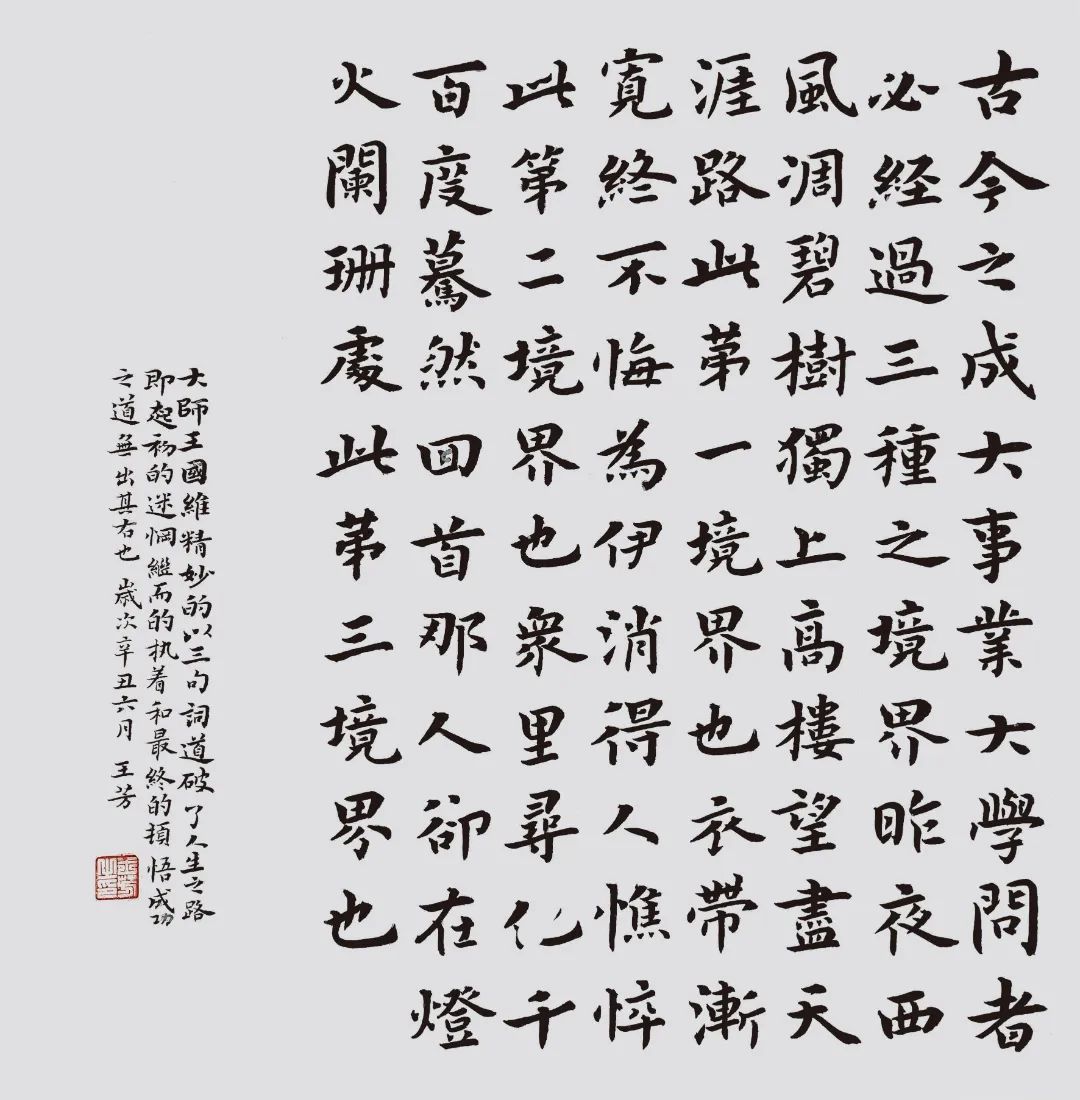 古今之成大事業大學問者
必経過三種之境界昨夜西
風凋碧樹獨上高樓望盡天
涯路此第一境界也衣帶漸
寬終不悔為伊消得人憔悴
此第二境界也衆里尋他千
百度驀然回首那人卻在燈
火闌珊處此第三境界也
大師王國維精妙的以三句詞道破了人生之路
即起初的迷惘繼而的执着和最終的頓悟成功
之道無出其右也 歲次辛丑六月 王芳